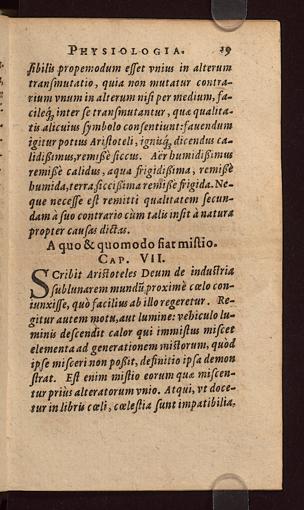 PHYSIOLOGIA. 19
sibilis propemodum esset vnius in alterum
transmutatio, quia non mutatur contra-
rium vnum in alterum nisi per medium, fa-
cileq́; inter se transmutantur, quæ qualita-
tis alicuius symbolo consentiunt: fauendum
igitur potius Aristoteli, igniq́; dicendus ca-
lidißimus, remißè siccus. Aër humidißimus
remißè calidus, aqua frigidißima, remißè
humida, terra siccißima remißè frigida. Ne-
que necesse est remitti qualitatem secun-
dam à suo contrario cùm talis insit à natura
propter causas dictas.
A quo & quomodo fiat mistio.
CAP. VII.
SCribit Aristoteles Deum de industria
sublunarem mundū proximè cœlo con-
iunxisse, quò facilius ab illo regeretur. Re-
gitur autem motu, aut lumine: vehiculo lu-
minis descendit calor qui immistus miscet
elementa ad generationem mistorum, quòd
ipse misceri non poßit, definitio ipsa demon
strat. Est enim mistio eorum quæ miscen-
tur prius alteratorum vnio. Atqui, vt doce-
tur in libris cœli, cœlestia sunt impatibilia,